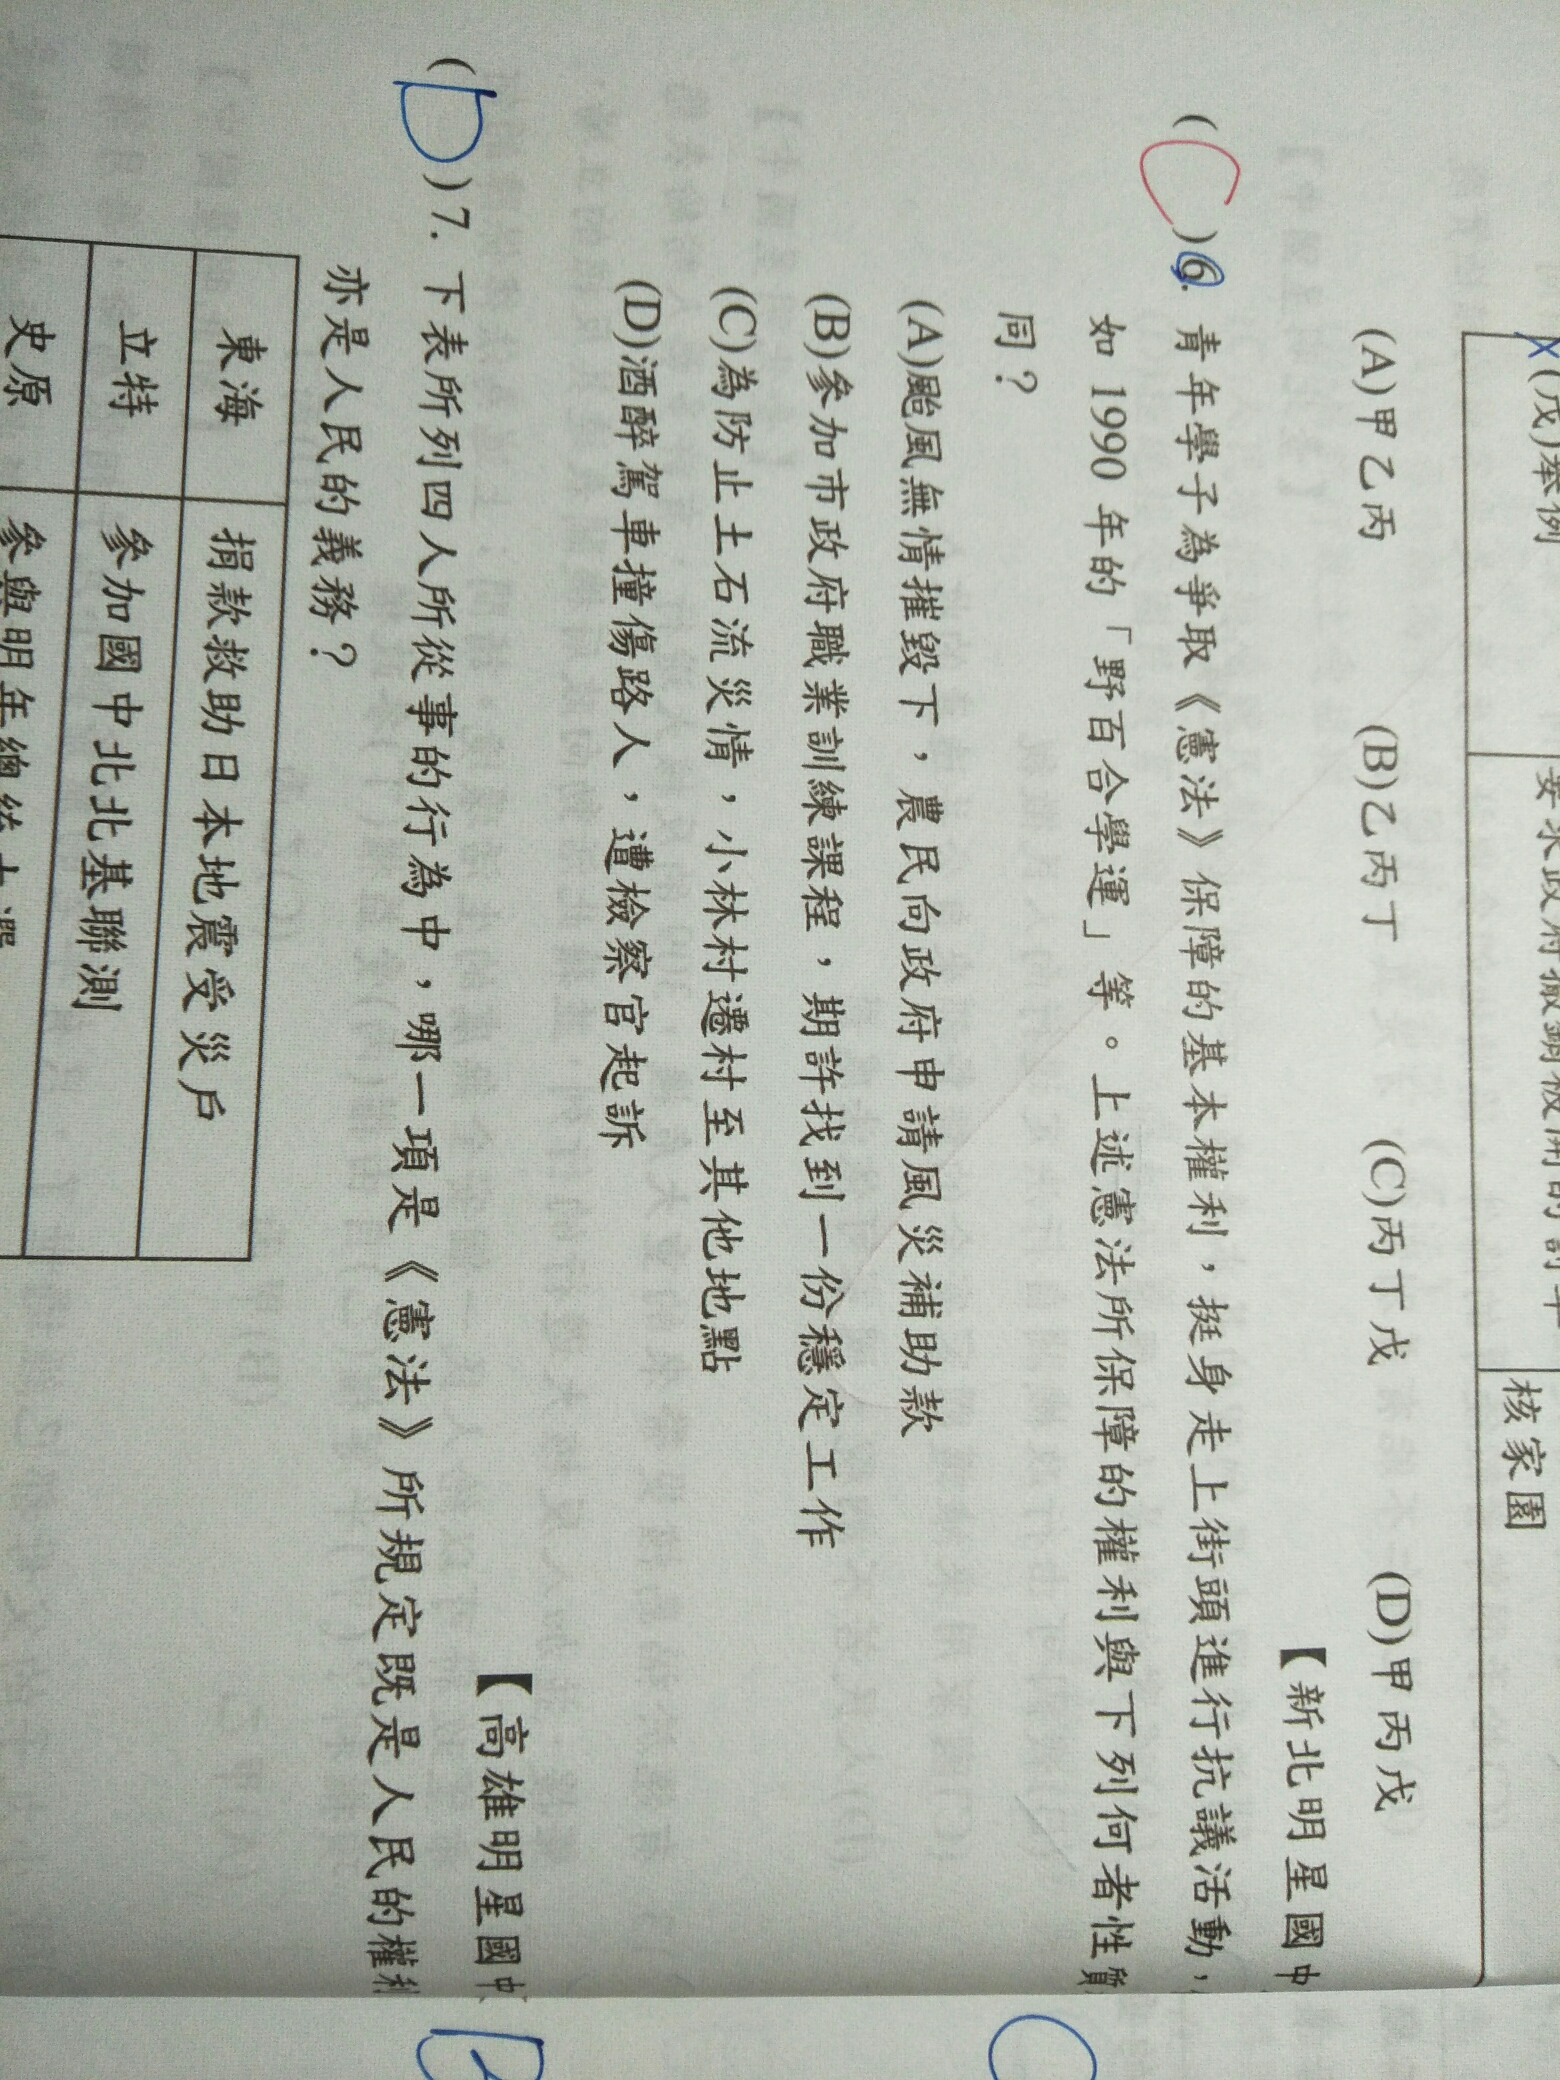 (戊)舉例
核家園
(A)甲乙丙 (B)乙丙丁 (C)丙丁戊 (D)甲丙戊
【新北明星國中
(C)6. 青年學子為爭取《憲法》保障的基本權利，挺身走上街頭進行抗議活動，
如 1990 年的「野百合學運」等。上述憲法所保障的權利與下列何者性質
同？
(A)颱風無情摧毀下，農民向政府申請風災補助款
(B)參加市政府職業訓練課程，期許找到一份穩定工作
(C)為防止土石流災情，小林村遷村至其他地點
(D)酒醉駕車撞傷路人，遭檢察官起訴
【高雄明星國中
(D)7. 下表所列四人所從事的行為中，哪一項是《憲法》所規定既是人民的權利
亦是人民的義務？
東海 捐款救助日本地震受災戶
立特 參加國中北北基聯測
史原 參與明年總統大選